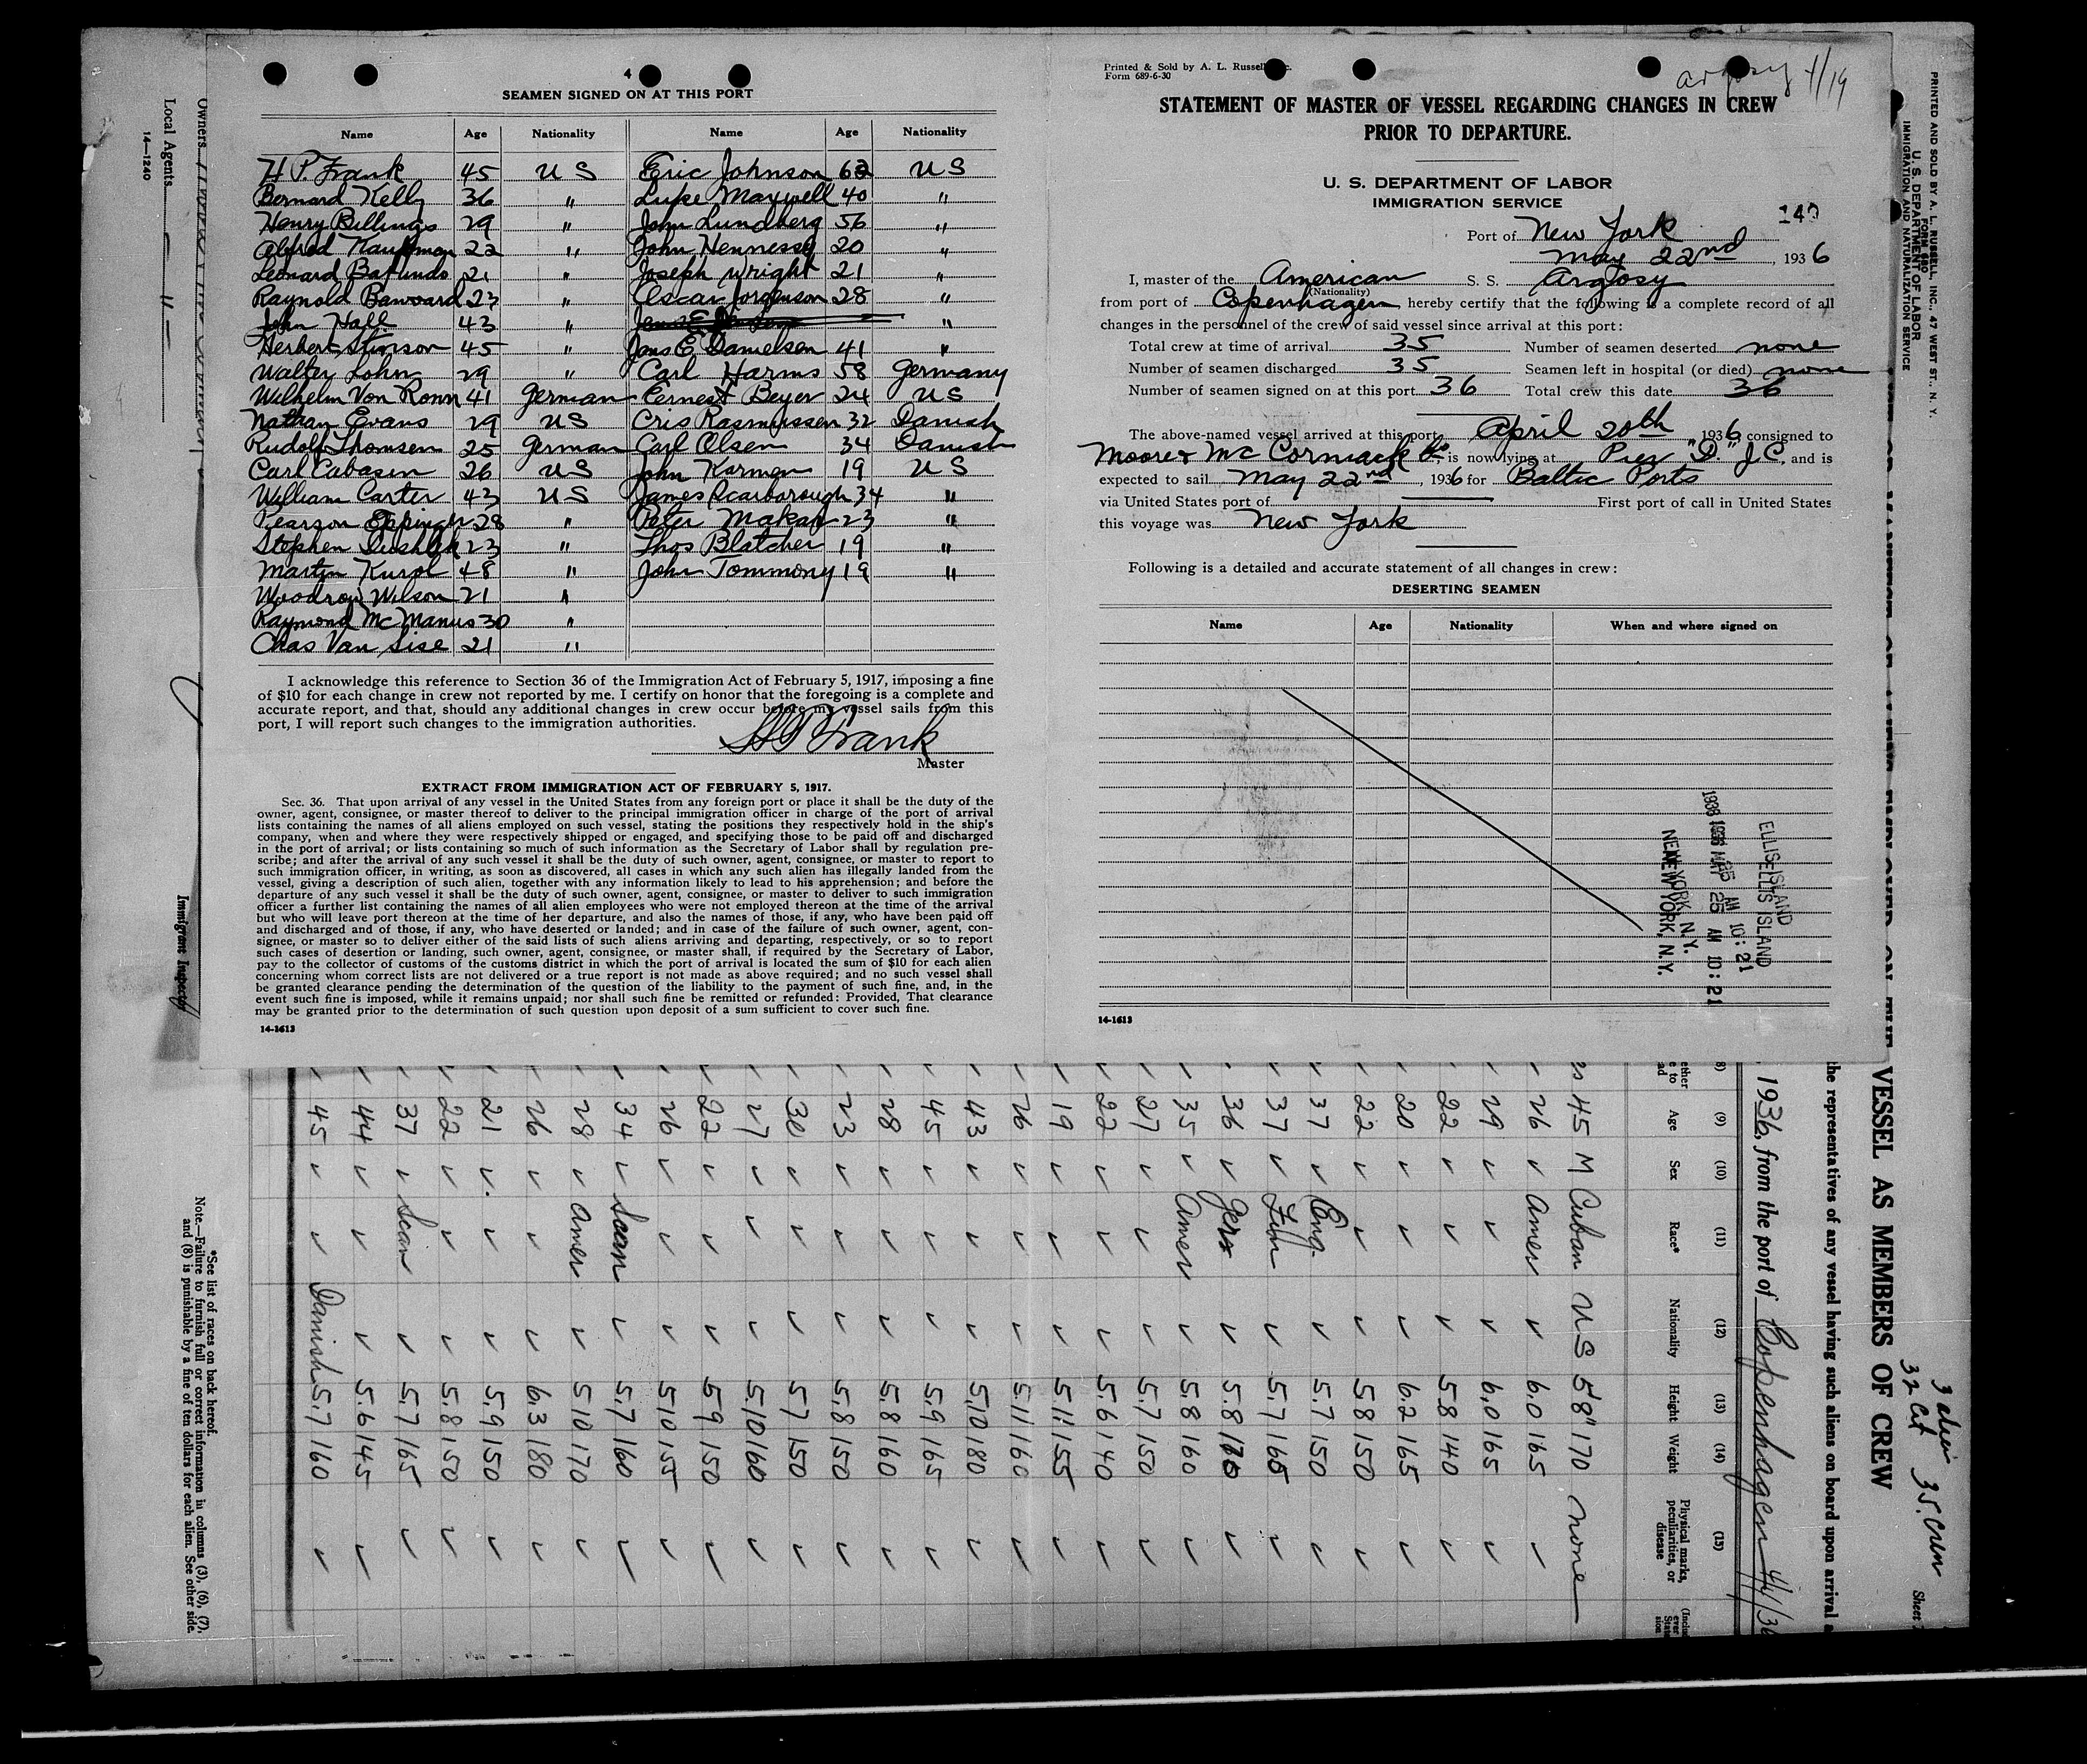 4
SEAMEN SIGNED ON AT THIS PORT
Name Age Nationality Name Age Nationality
H P. Frank 45 U S Eric Johnson 62 U S
Bernard Kelly 36 " Luke Maxwell 40 "
Henry Billings 29 " John Lundberg 56 "
Alfred Kauffman 22 " John Hennessy 20 "
Leonard 21 " Joseph Wright 21 "
Raynold 23 " Oscar Jorgenson 28 "
John Hall 43 " "
Herbert Stinson 45 " Jans E Danielsen 41 "
Walter John 29 " Carl Harms 58 Germany
Wilhelm Von Ronn 41 German Ernest Beyer 24 US
Nathan Evans 29 US Cris Rasmussen 32 Danish
Rudolf Thomsen 25 German Carl Olsen 34 Danish
Carl 26 US John Karmen 19 U S
William Carter 43 US James Scarborough 34 "
Pearson 28 " Peter Makar 23 "
Stephen 23 " Thos Blatcher 19 "
Martin 48 " John Tommony 19 "
Woodrow Wilson 21 "
Raymond McManus 30 "
Chas Van Sise 21 "
I acknowledge this reference to Section 36 of the Immigration Act of February 5, 1917, imposing a fine
of $10 for each change in crew not reported by me. I certify on honor that the foregoing is a complete and
accurate report, and that, should any additional changes in crew occur before my vessel sails from this
port, I will report such changes to the immigration authorities.
H P Frank
Master
EXTRACT FROM IMMIGRATION ACT OF FEBRUARY 5, 1917.
Sec. 36. That upon arrival of any vessel in the United States from any foreign port or place it shall be the duty of the
owner, agent, consignee, or master thereof to deliver to the principal immigration officer in charge of the port of arrival
lists containing the names of all aliens employed on such vessel, stating the positions they respectively hold in the ship's
company, when and where they were respectively shipped or engaged, and specifying those to be paid off and discharged
in the port of arrival; or lists containing so much of such information as the Secretary of Labor shall by regulation pre-
scribe; and after the arrival of any such vessel it shall be the duty of such owner, agent, consignee, or master to report to
such immigration officer, in writing, as soon as discovered, all cases in which any such alien has illegally landed from the
vessel, giving a description of such alien, together with any information likely to lead to his apprehension; and before the
departure of any such vessel it shall be the duty of such owner, agent, consignee, or master to deliver to such immigration
officer a further list containing the names of all alien employees who were not employed thereon at the time of the arrival
but who will leave port thereon at the time of her departure, and also the names of those, if any, who have been paid off
and discharged and of those, if any, who have deserted or landed; and in case of the failure of such owner, agent, con-
signee, or master so to deliver either of the said lists of such aliens arriving and departing, respectively, or so to report
such cases of desertion or landing, such owner, agent, consignee, or master shall, if required by the Secretary of Labor,
pay to the collector of customs of the customs district in which the port of arrival is located the sum of $10 for each alien
concerning whom correct lists are not delivered or a true report is not made as above required; and no such vessel shall
be granted clearance pending the determination of the question of the liability to the payment of such fine, and, in the
event such fine is imposed, while it remains unpaid; nor shall such fine be remitted or refunded: Provided, That clearance
may be granted prior to the determination of such question upon deposit of a sum sufficient to cover such fine.
14-1613
Printed & Sold by A. L. Russell
Form 689-6-30
Argosy 4/19
STATEMENT OF MASTER OF VESSEL REGARDING CHANGES IN CREW
PRIOR TO DEPARTURE.
U. S. DEPARTMENT OF LABOR
IMMIGRATION SERVICE
140
Port of New York
May 22nd, 1936
I, master of the American S. S. Argosy
(Nationality)
from port of Copenhagen hereby certify that the following is a complete record of all
changes in the personnel of the crew of said vessel since arrival at this port:
Total crew at time of arrival 35 Number of seamen deserted none
Number of seamen discharged 35 Seamen left in hospital (or died) none
Number of seamen signed on at this port 36 Total crew this date 36
The above-named vessel arrived at this port April 20th 1936 consigned to
Moore & McCormack Co., is now lying at Pier "D." J C, and is
expected to sail May 22nd, 1936 for Baltic Ports
via United States port of First port of call in United States
this voyage was New York
Following is a detailed and accurate statement of all changes in crew:
DESERTING SEAMEN
Name Age Nationality When and where signed on
ELLIS ISLAND
1936 MAY 25 AM 10:21
NEW YORK, N.Y.
14-1613
Owners
Local Agents " 
14-1240
Immigrant Inspector
PRINTED AND SOLD BY A. L. RUSSELL, INC., 47 WEST ST., N. Y.
FORM 680
U. S. DEPARTMENT OF LABOR
IMMIGRATION AND NATURALIZATION SERVICE
3 alien
32 cit 35 crew
Sheet
VESSEL AS MEMBERS OF CREW
the representatives of any vessel having such aliens on board upon arrival
1936, from the port of Copenhagen 4/1/36
(9) (10) (11) (12) (13) (14) (15)
Age Sex Race* Nationality Height Weight Physical marks, peculiarities, or disease
45 M Cuban U S 5'8" 170 none
26 ✓ Amer ✓ 6.0 165 ✓
29 ✓ ✓ ✓ 6.0 165 ✓
22 ✓ ✓ ✓ 5.8 140 ✓
20 ✓ ✓ ✓ 6.2 165 ✓
22 ✓ ✓ ✓ 5.8 150 ✓
37 ✓ Eng. ✓ 5.7 150 ✓
37 ✓ Finn ✓ 5.7 165 ✓
36 ✓ Ger ✓ 5.8 170 ✓
35 ✓ Amer ✓ 5.8 160 ✓
27 ✓ ✓ ✓ 5.7 150 ✓
22 ✓ ✓ ✓ 5.6 140 ✓
19 ✓ ✓ ✓ 5.11 155 ✓
26 ✓ ✓ ✓ 5.11 160 ✓
43 ✓ ✓ ✓ 5.10 180 ✓
45 ✓ ✓ ✓ 5.9 165 ✓
28 ✓ ✓ ✓ 5.8 160 ✓
23 ✓ ✓ ✓ 5.8 150 ✓
30 ✓ ✓ ✓ 5.7 150 ✓
27 ✓ ✓ ✓ 5.10 160 ✓
22 ✓ ✓ ✓ 5.9 150 ✓
26 ✓ ✓ ✓ 5.10 155 ✓
34 ✓ Scan ✓ 5.7 160 ✓
28 ✓ Amer ✓ 5.10 170 ✓
26 ✓ ✓ ✓ 6.3 180 ✓
21 ✓ ✓ ✓ 5.9 150 ✓
22 ✓ ✓ ✓ 5.8 150 ✓
37 ✓ Scan ✓ 5.7 165 ✓
44 ✓ ✓ ✓ 5.6 145 ✓
45 ✓ ✓ Danish 5.7 160 ✓
*See list of races on back hereof.
Note.—Failure to furnish full or correct information in columns (3), (6), (7),
and (8) is punishable by a fine of ten dollars for each alien. See other side.